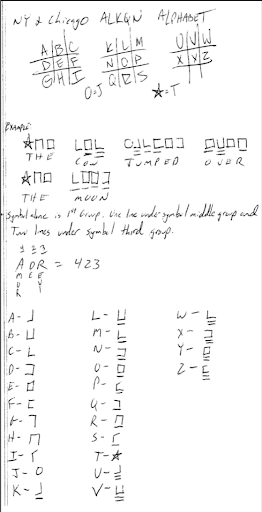 NY & Chicago ALKQN ALPHABET
A|B|C K|L|M U|V|W
D|E|F N|O|P X|Y|Z
G|H|I Q|R|S
O=J ★=T
EXAMPLE
THE COW JUMPED OVER
THE MOON
Symbol alone is 1st Group. Use line under symbol middle group and
Two lines under symbol third group.
ADR = 423
A- L- W-
B- M- X-
C- N- Y-
D- O- Z-
E- P-
F- Q-
G- R-
H- S-
I- T- ★
J- O U-
K- V-